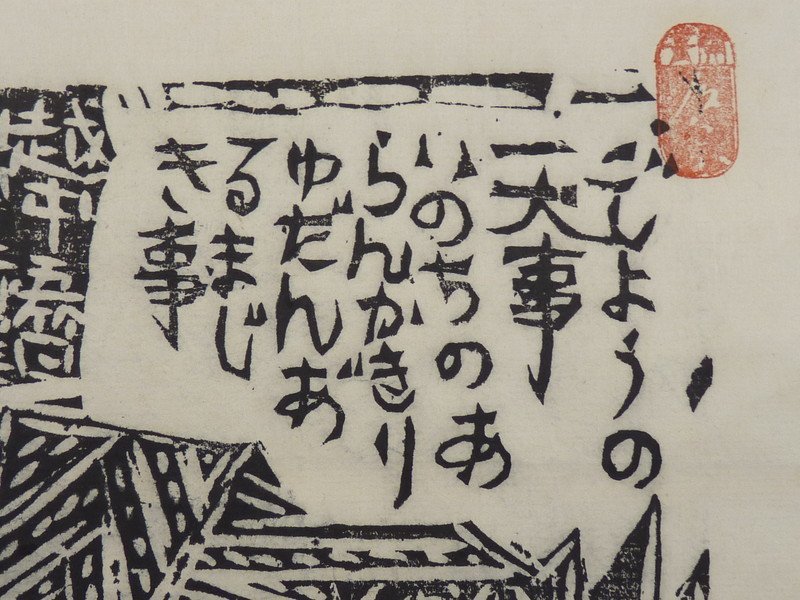 ごしようの
一大事
いのちのあ
らんかぎり
ゆだんあ
るまじ
き事
越中